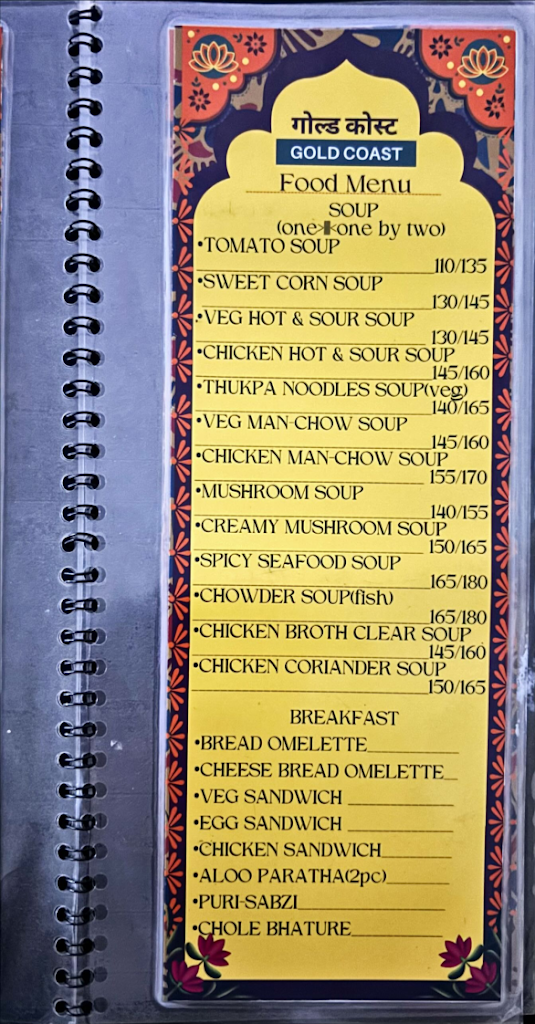 गोल्ड कोस्ट
GOLD COAST
Food Menu
SOUP
(one><one by two)
•TOMATO SOUP
110/135
•SWEET CORN SOUP
130/145
•VEG HOT & SOUR SOUP
130/145
•CHICKEN HOT & SOUR SOUP
145/160
•THUKPA NOODLES SOUP(veg)
140/165
•VEG MAN-CHOW SOUP
145/160
•CHICKEN MAN-CHOW SOUP
155/170
•MUSHROOM SOUP
140/155
•CREAMY MUSHROOM SOUP
150/165
•SPICY SEAFOOD SOUP
165/180
•CHOWDER SOUP(fish)
165/180
•CHICKEN BROTH CLEAR SOUP
145/160
•CHICKEN CORIANDER SOUP
150/165
BREAKFAST
•BREAD OMELETTE
•CHEESE BREAD OMELETTE
•VEG SANDWICH
•EGG SANDWICH
•CHICKEN SANDWICH
•ALOO PARATHA(2pc)
•PURI-SABZI
•CHOLE BHATURE